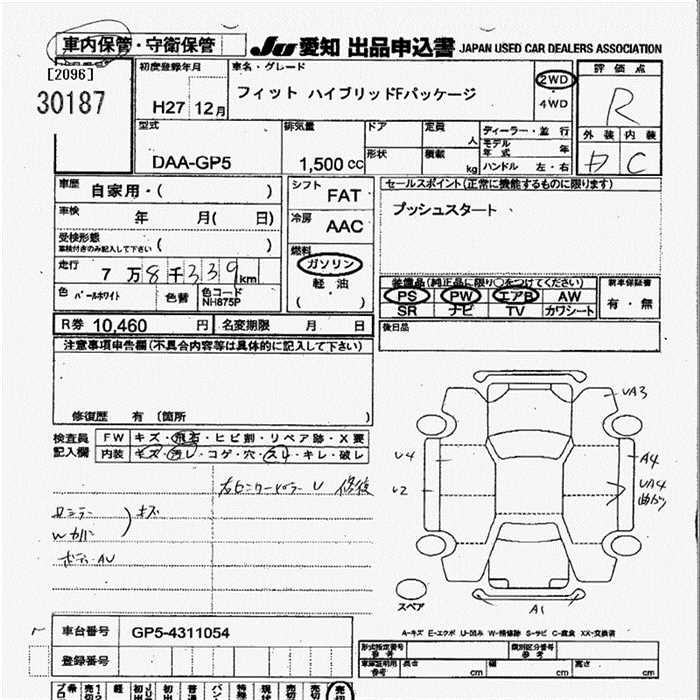 車内保管・守衛保管
JU 愛知 出品申込書 JAPAN USED CAR DEALERS ASSOCIATION
[2096]
30187
初度登録年月
H27 12月
車名・グレード
フィット ハイブリッドFパッケージ
2WD
・
4WD
評価点
R
外装 内装
C
型式
DAA-GP5
排気量
1,500 cc
ドア
形状
定員
人
積載
kg
ディーラー・並 行
モデル年式 年
ハンドル 左・右
車歴 自家用・( )
車検 年 月( 日)
受検形態
車検付きのみ記入して下さい ( )
走行 7万8千339km
色 パールホワイト
色替
色コード
NH875P
シフト
FAT
冷房
AAC
燃料
ガソリン
・
軽 油
( )
セールスポイント(正常に機能するものに限ります)
プッシュスタート
装備品(純正品に限り○をつけてください)
PS PW エアB AW
SR ナビ TV カワシート
新車保証書
有・無
後日品
R券 10,460 円 名変期限 月 日
注意事項申告欄(不具合内容等は具体的に記入して下さい)
修復歴 有 (箇所 )
検査員
記入欄
FW キズ・飛石・ヒビ割・リペア跡・X要
内装 キズ・汚レ・コゲ・穴・スレ・キレ・破レ
キズ
Wカバー
UA3
U4
U2
A4
UA4
曲がり
A1
スペア
A-キズ E-エクボ U-凹み W-補修跡 S-サビ C-腐食 XX-交換済
車台番号 GP5-4311054
登録番号
形式指定番号
参考
類別区分番号
参考
車庫証明用
参考
長さ cm
幅 cm
高さ cm